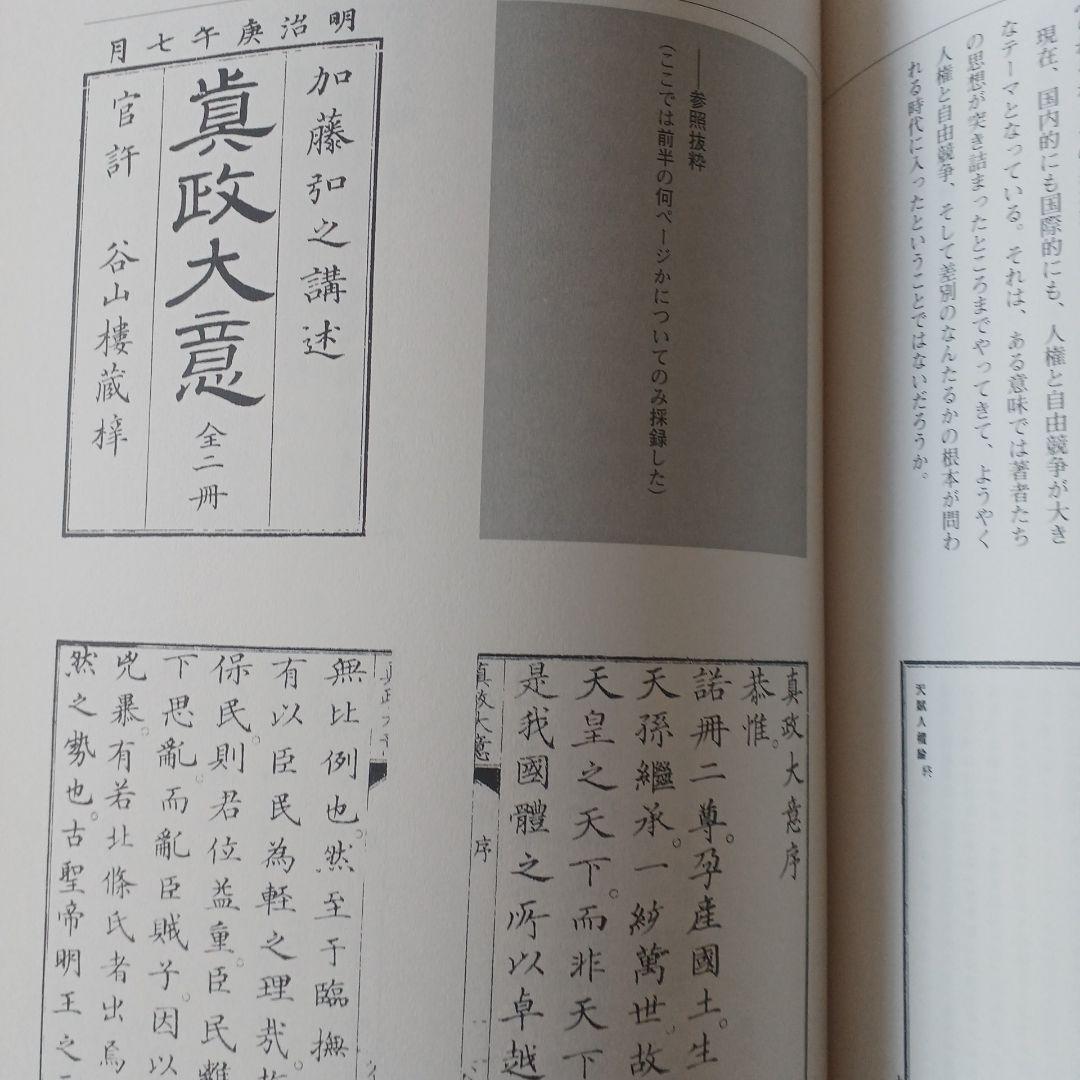 現在、国内的にも国際的にも、人権と自由競争が大き
なテーマとなっている。それは、ある意味では著者たち
の思想が突き詰まったところまでやってきて、ようやく
人権と自由競争、そして差別のなんたるかの根本が問わ
れる時代に入ったということではないだろうか。
天賦人權論 終
——参照抜粋
(ここでは前半の何ページかについてのみ採録した)
明治庚午七月
加藤弘之講述
眞政大意 全二冊
官許 谷山樓蔵梓
真政大意序
恭惟。
諾冊二尊。孕産國土。生
天孫繼承。一紗萬世。故
天皇之天下。而非天下
是我國體之所以卓越
真政大意
序
無比例也。然至于臨撫
有以臣民為輕之理哉。
保民。則君位益重。臣民
下思亂。而亂臣賊子。因以
兇暴。有若北條氏者出焉
然之勢也。古聖帝明王之